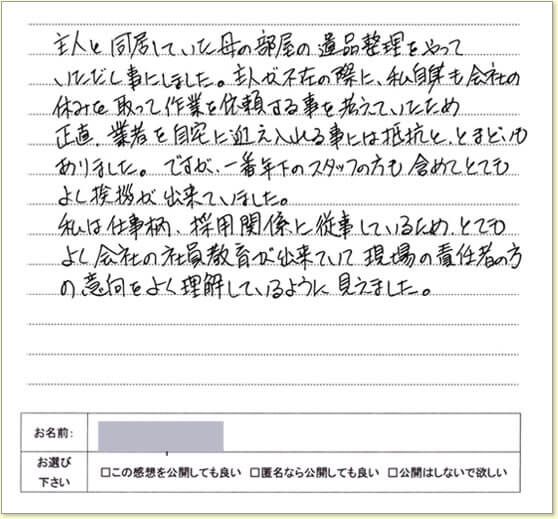 主人と同居していた母の部屋の遺品整理をやって
いただく事にしました。主人が不在の際に、私自身も会社の
休みを取って作業を依頼する事を考えていたため
正直、業者を自宅に迎え入れる事には抵抗と、とまどいも
ありました。ですが、一番年下のスタッフの方も含めてとても
よく挨拶が出来ていました。
私は仕事柄、採用関係に従事しているため、とても
よく会社の社員教育が出来ていて現場の責任者の方
の意向をよく理解しているように見えました。
お名前:
お選び下さい
□この感想を公開しても良い □匿名なら公開しても良い □公開はしないで欲しい